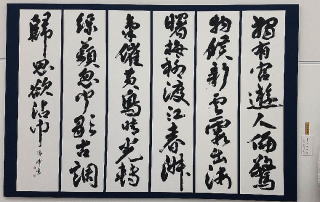 獨有宦遊人偏驚
物候新雲霞出海
曙梅柳渡江春淑
氣催黃鳥晴光轉
綠蘋忽聞歌古調
歸思欲沾巾